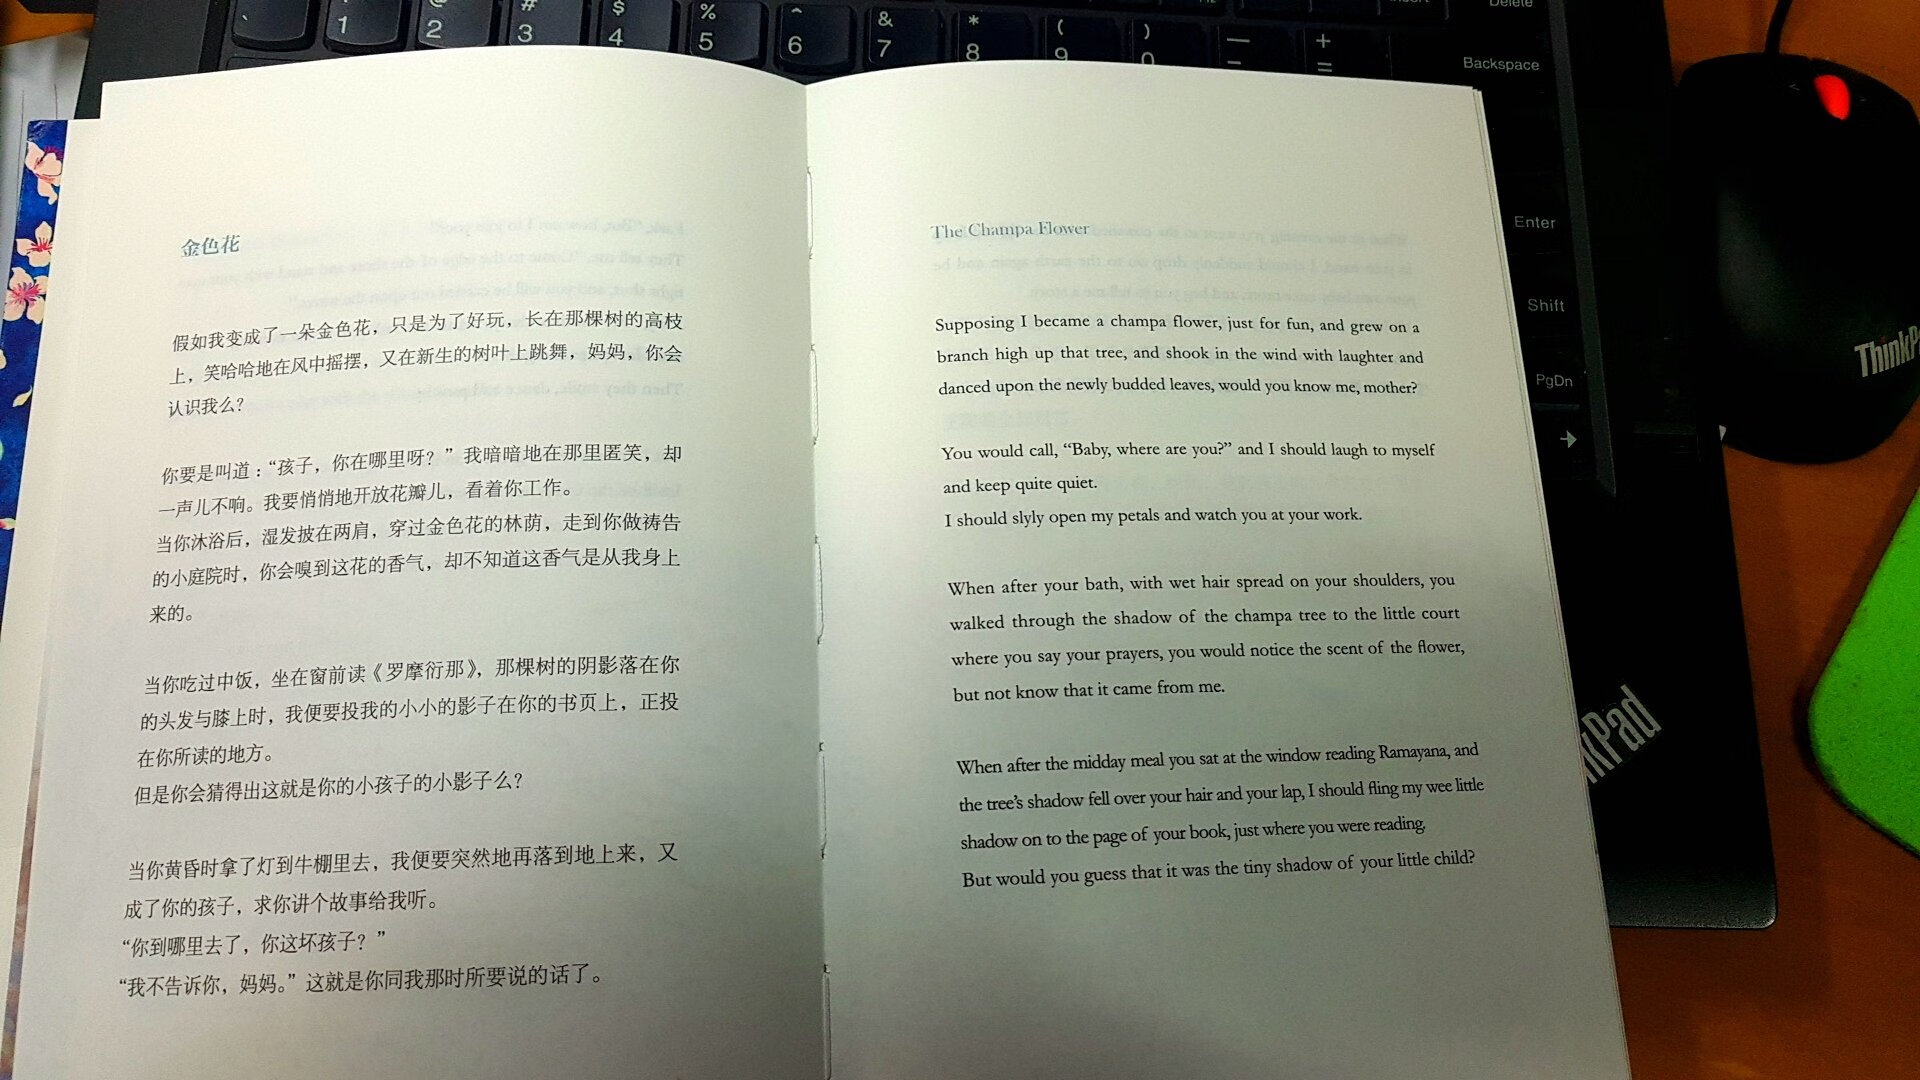 金色花
假如我变成了一朵金色花，只是为了好玩，长在那棵树的高枝
上，笑哈哈地在风中摇摆，又在新生的树叶上跳舞，妈妈，你会
认识我么？
你要是叫道：“孩子，你在哪里呀？”我暗暗地在那里匿笑，却
一声儿不响。我要悄悄地开放花瓣儿，看着你工作。
当你沐浴后，湿发披在两肩，穿过金色花的林荫，走到你做祷告
的小庭院时，你会嗅到这花的香气，却不知道这香气是从我身上
来的。
当你吃过中饭，坐在窗前读《罗摩衍那》，那棵树的阴影落在你
的头发与膝上时，我便要投我的小小的影子在你的书页上，正投
在你所读的地方。
但是你会猜得出这就是你的小孩子的小影子么？
当你黄昏时拿了灯到牛棚里去，我便要突然地再落到地上来，又
成了你的孩子，求你讲个故事给我听。
“你到哪里去了，你这坏孩子？”
“我不告诉你，妈妈。”这就是你同我那时所要说的话了。
The Champa Flower
Supposing I became a champa flower, just for fun, and grew on a
branch high up that tree, and shook in the wind with laughter and
danced upon the newly budded leaves, would you know me, mother?
You would call, “Baby, where are you?” and I should laugh to myself
and keep quite quiet.
I should slyly open my petals and watch you at your work.
When after your bath, with wet hair spread on your shoulders, you
walked through the shadow of the champa tree to the little court
where you say your prayers, you would notice the scent of the flower,
but not know that it came from me.
When after the midday meal you sat at the window reading Ramayana, and
the tree’s shadow fell over your hair and your lap, I should fling my wee little
shadow on to the page of your book, just where you were reading.
But would you guess that it was the tiny shadow of your little child?
` 1 2 # 3 $ 4 % 5 ^ 6 & 7 * 8 ( 9 ) 0 — - + =
Delete
Backspace
Enter
Shift
PgDn
ThinkP
nkPad